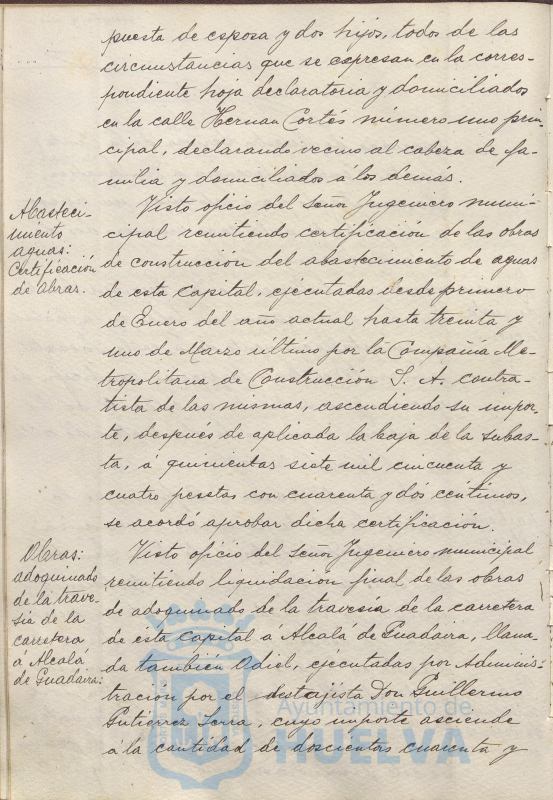 puesta de esposa y dos hijos, todos de las
circunstancias que se expresan en la corres-
pondiente hoja declaratoria y domiciliados
en la calle Hernan Cortés número uno prin-
cipal, declarando vecino al cabeza de fa-
milia y domiciliados á los demas.
Abasteci-
miento
aguas:
Certificación
de obras.
Visto oficio del Señor Ingeniero muni-
cipal remitiendo certificación de las obras
de construccion del abastecimiento de aguas
de esta Capital, ejecutadas desde primero
de Enero del año actual hasta treinta y
uno de Marzo último por la Compañia Me-
tropolitana de Construcción S. A. contra-
tista de las mismas, ascendiendo su impor-
te, después de aplicada la baja de la subas-
ta, á quinientas siete mil cincuenta y
cuatro pesetas, con cuarenta y dós centimos,
se acordó aprobar dicha certificación.
Obras:
adoquinado
de la trave-
sia de la
carretera
á Alcalá
de Guadaira:
Visto oficio del Señor Ingeniero municipal
remitiendo liquidacion final de las obras
de adoquinado de la travesia de la carretera
de esta Capital á Alcalá de Guadaira, llama-
da también Odiel, ejecutadas por Adminis-
tración por el destajista Don Guillermo
Gutierrez Serra, cuyo importe asciende
á la cantidad de doscientas cuarenta y
Ayuntamiento de
HUELVA